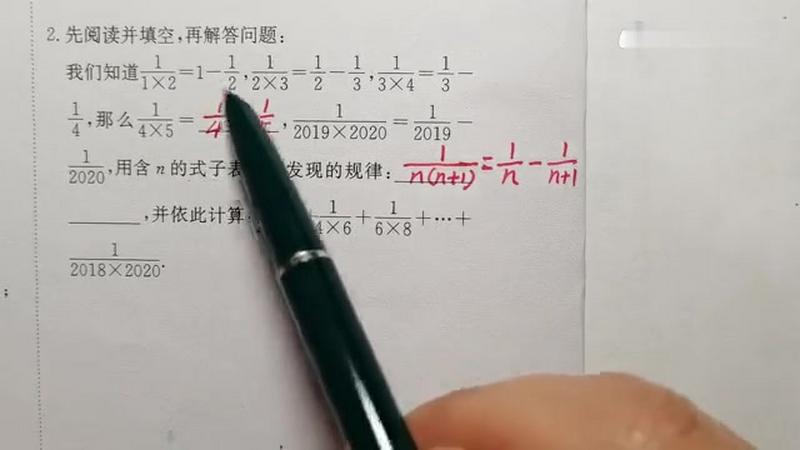 2. 先阅读并填空,再解答问题:
我们知道 1/(1×2) = 1 − 1/2, 1/(2×3) = 1/2 − 1/3, 1/(3×4) = 1/3 −
1/4, 那么 1/(4×5) = 1/4, 1/(2019×2020) = 1/2019 −
1/2020, 用含 n 的式子表 发现的规律: 1/(n(n+1)) = 1/n − 1/(n+1)
______, 并依此计算 + 1/(4×6) + 1/(6×8) + ⋯ +
1/(2018×2020).